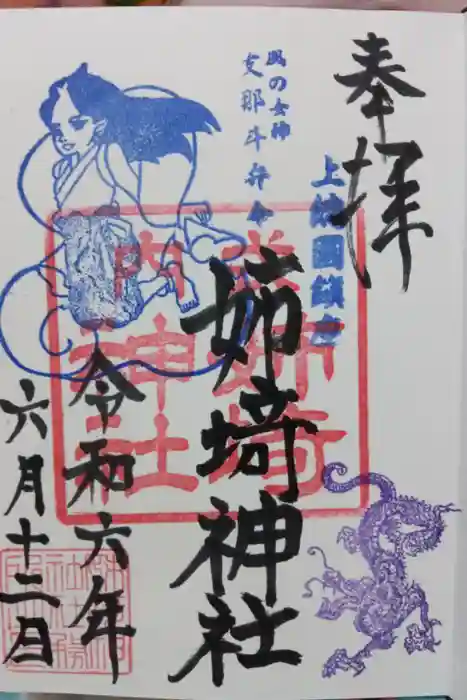 奉拝
上総国鎮座
風の女神
支那斗弁命
姉埼神社
令和六年
六月十二日